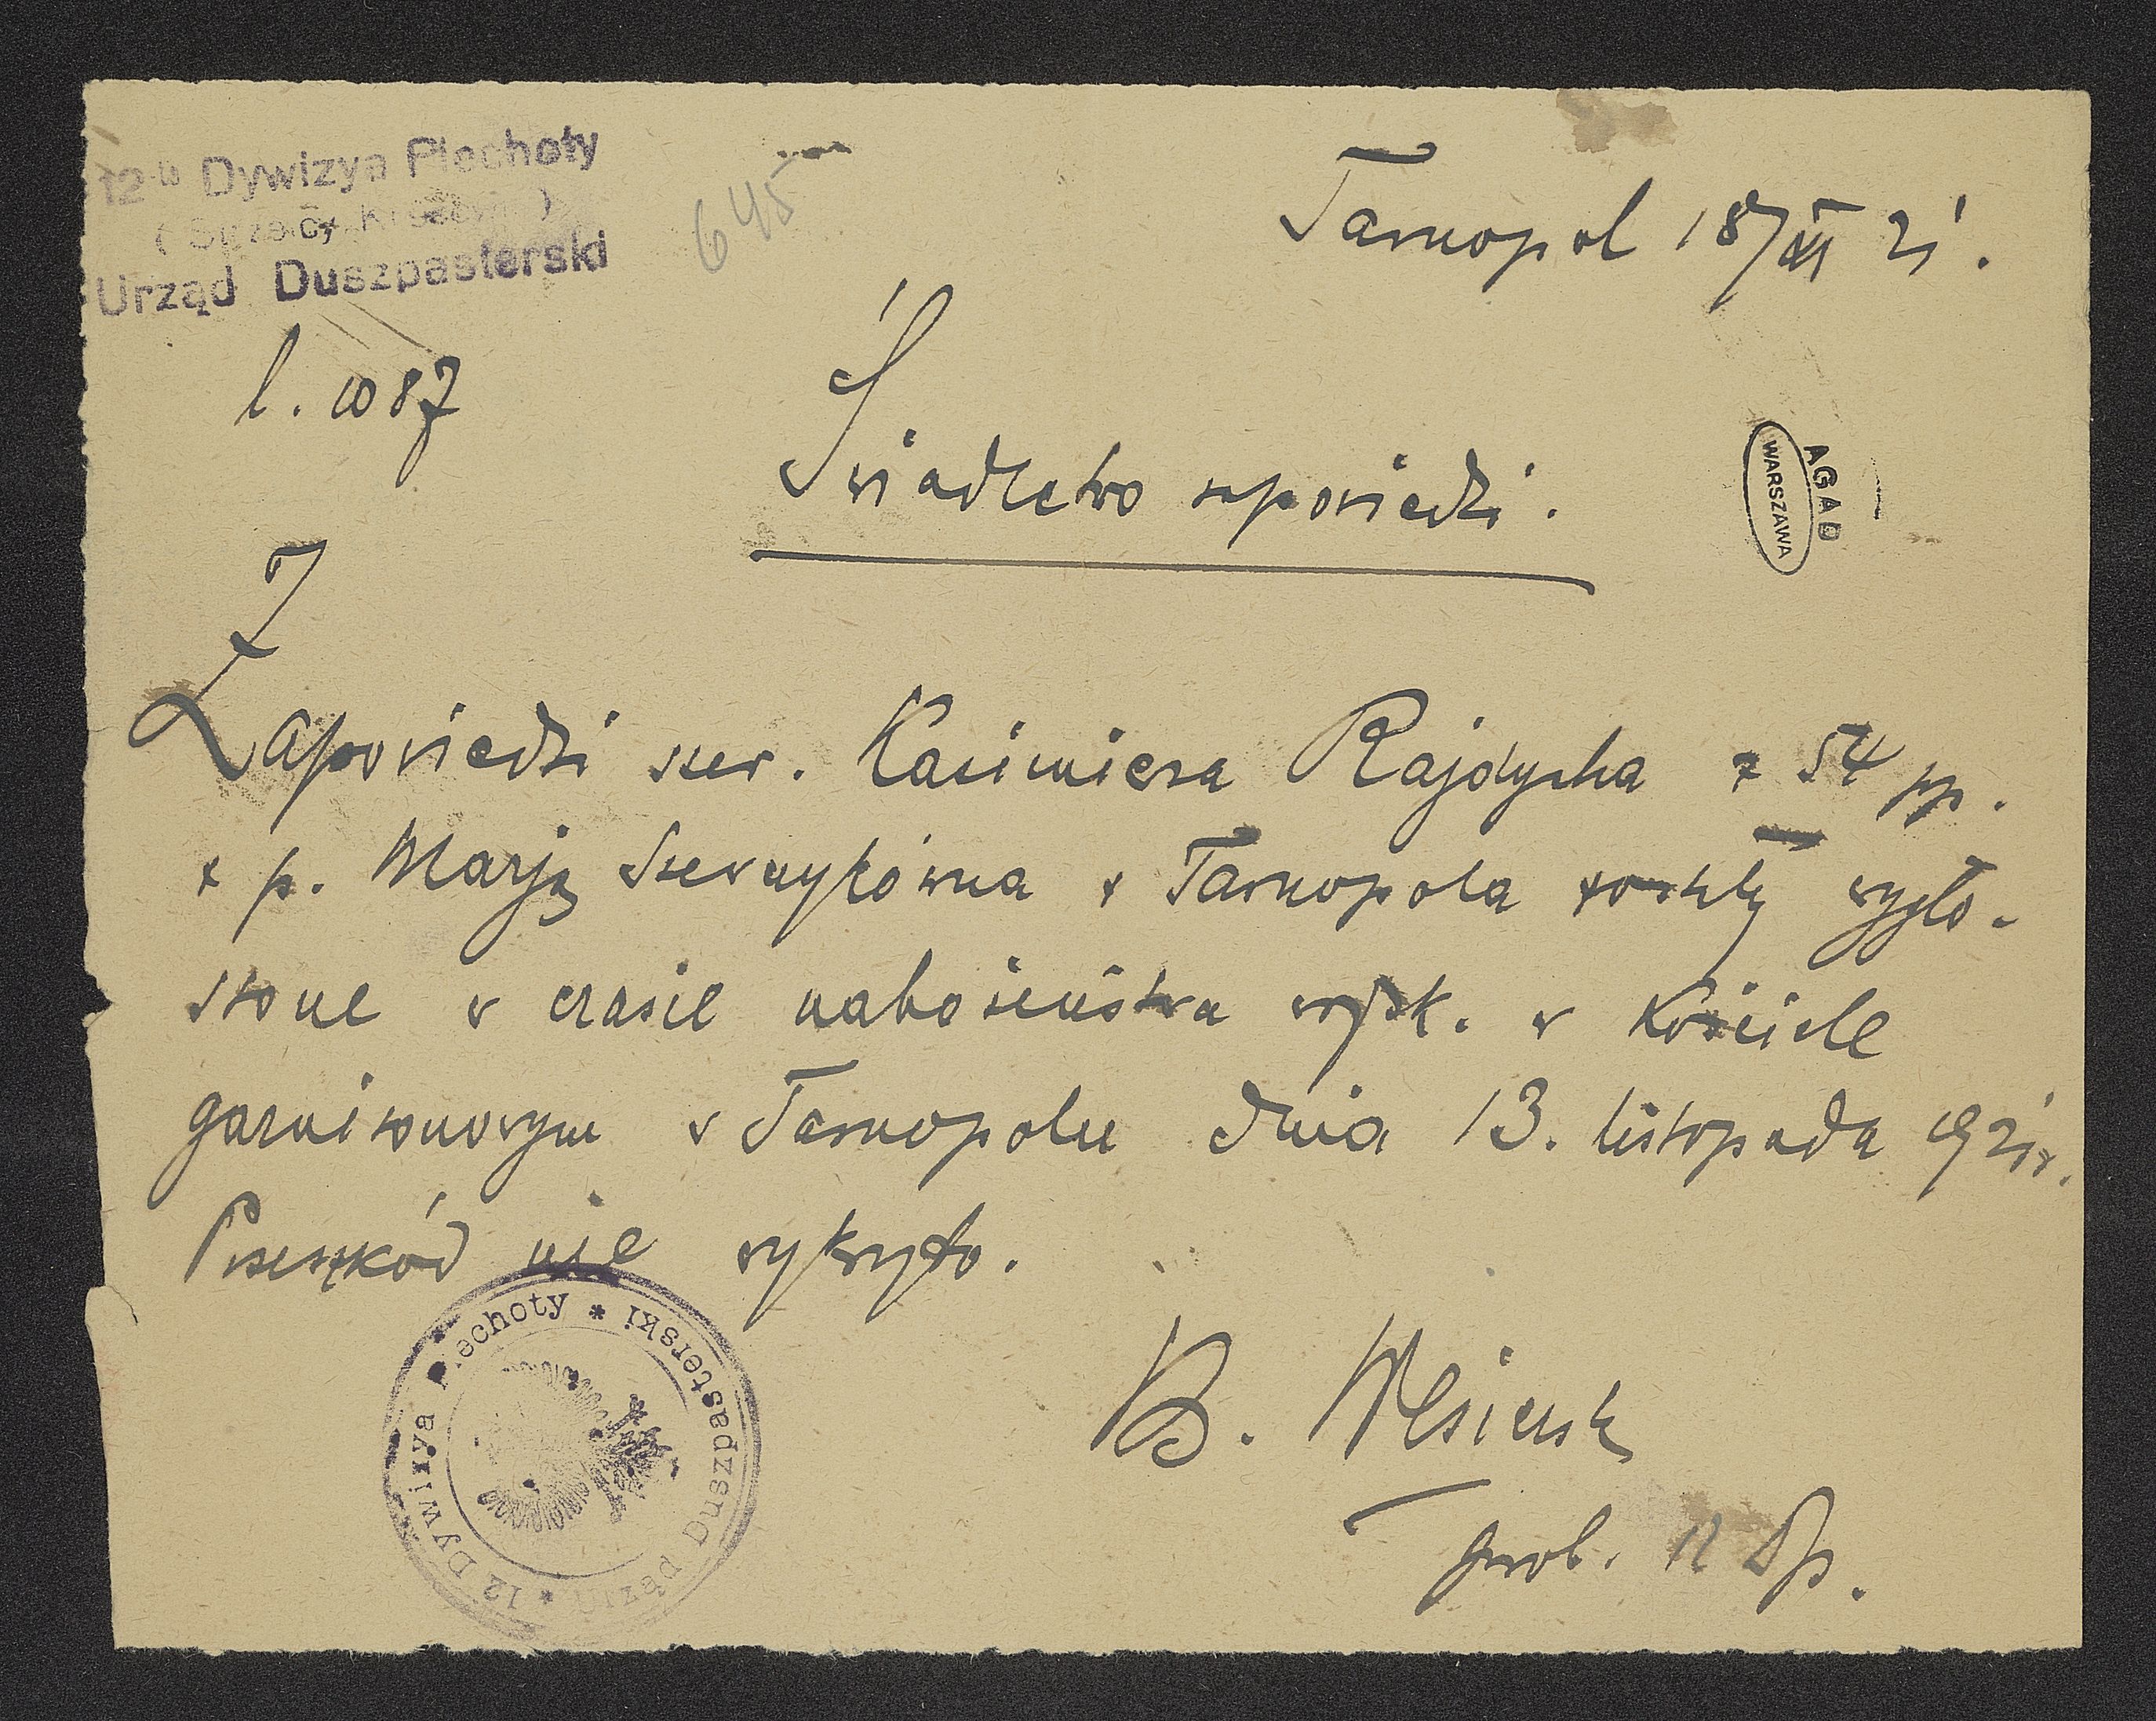 12-ta Dywizya Piechoty
Urząd Duszpasterski
645
Tarnopol 18/XI 21.
l. 1087
Świadectwo zapowiedzi.
AGAD
WARSZAWA
Zapowiedzi szer. Kazimierza Rajdycha z 54 pp.
z p. Marją Szewczykówna z Tarnopola zostały wygło-
szone w czasie nabożeństwa wojsk. w kościele
garnizonowym w Tarnopolu dnia 13. listopada 1921 r.
Przeszkód nie wykryto.
12 Dywizya Piechoty * Urząd Duszpasterski *
B.
prob. 12 Dp.